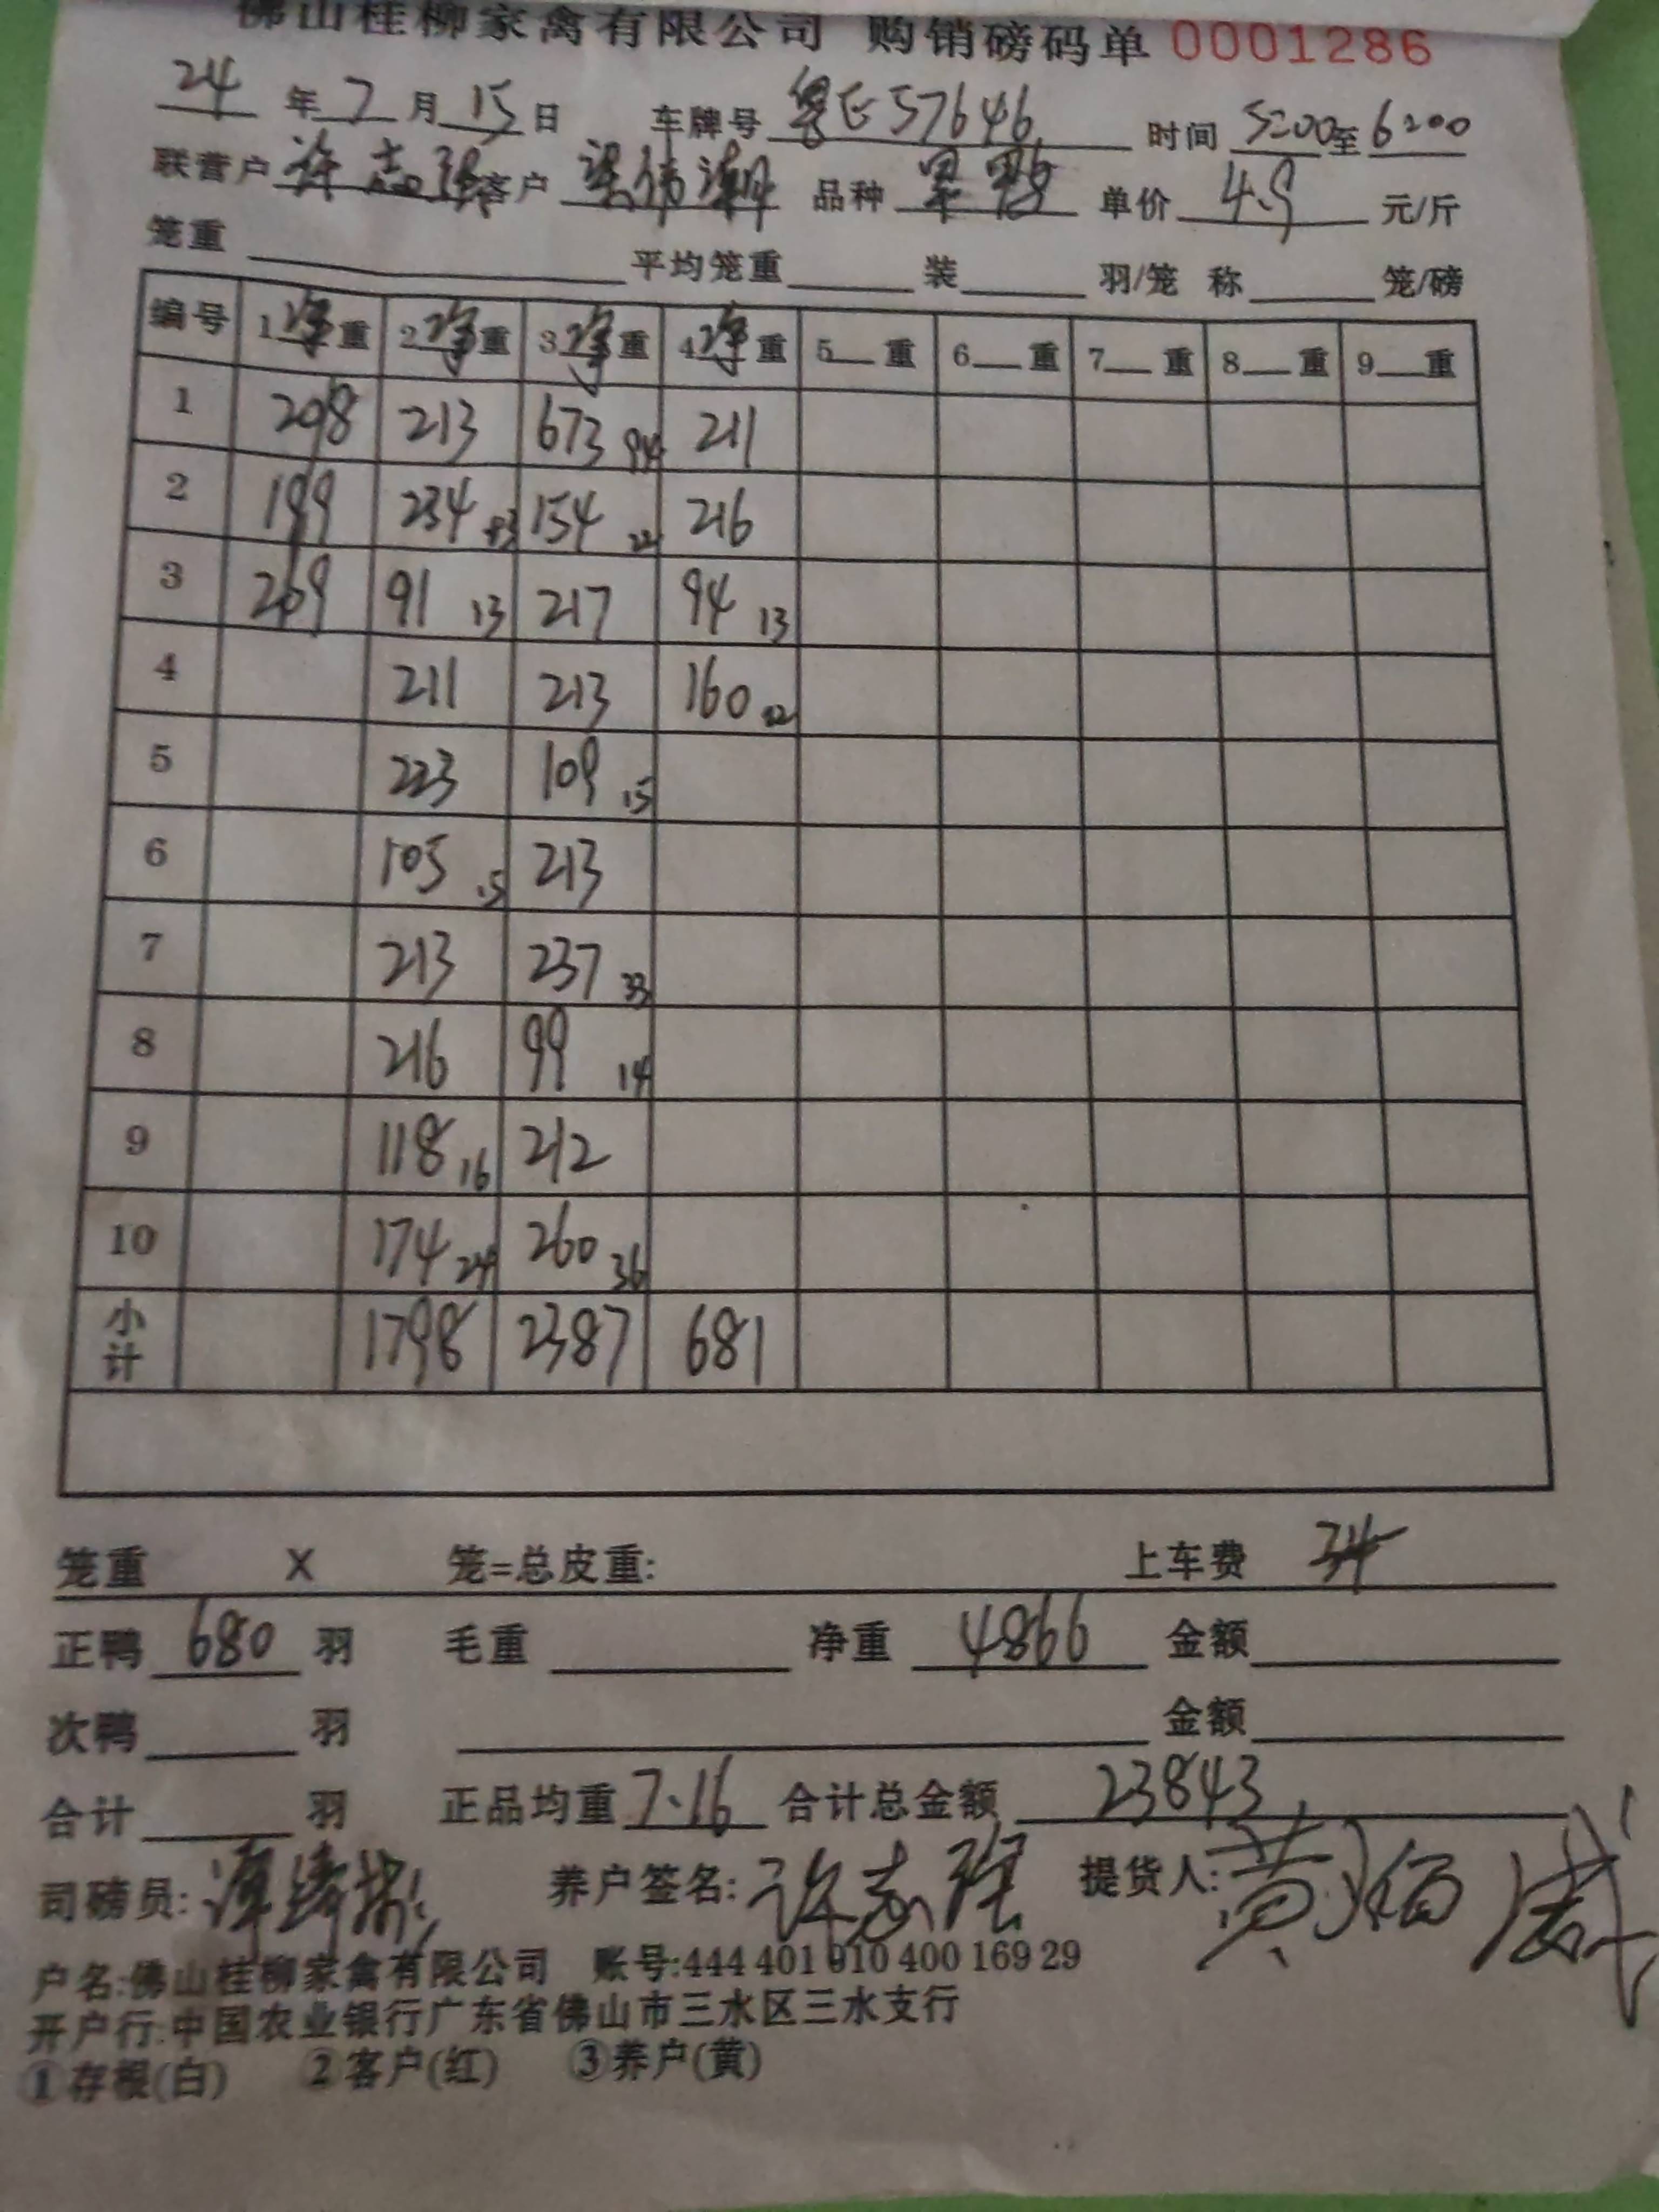 佛山桂柳家禽有限公司 购销磅码单 0001286
24 年 7 月 15 日 车牌号 粤E57646 时间 5:00 至 6:00
联营户 许志强 客户 梁伟潮 品种 黑鸭 单价 4.9 元/斤
笼重 平均笼重 装 羽/笼 称 笼/磅
编号 1 净 重 2 净 重 3 净 重 4 净 重 5 重 6 重 7 重 8 重 9 重
1 208 213 673 94 211
2 199 234 33 154 22 216
3 269 91 13 217 94 13
4 211 213 160 22
5 223 109 15
6 105 15 213
7 213 237 33
8 216 99 14
9 118 16 212
10 174 24 260 36
小计 1798 2387 681
笼重 X 笼=总皮重: 上车费 34
正鸭 680 羽 毛重 净重 4866 金额
次鸭 羽 金额
合计 羽 正品均重 7.16 合计总金额 23843
司磅员: 养户签名: 许志强 提货人: 黄炳威
户名:佛山桂柳家禽有限公司 账号:444 401 010 400 169 29
开户行:中国农业银行广东省佛山市三水区三水支行
①存根(白) ②客户(红) ③养户(黄)